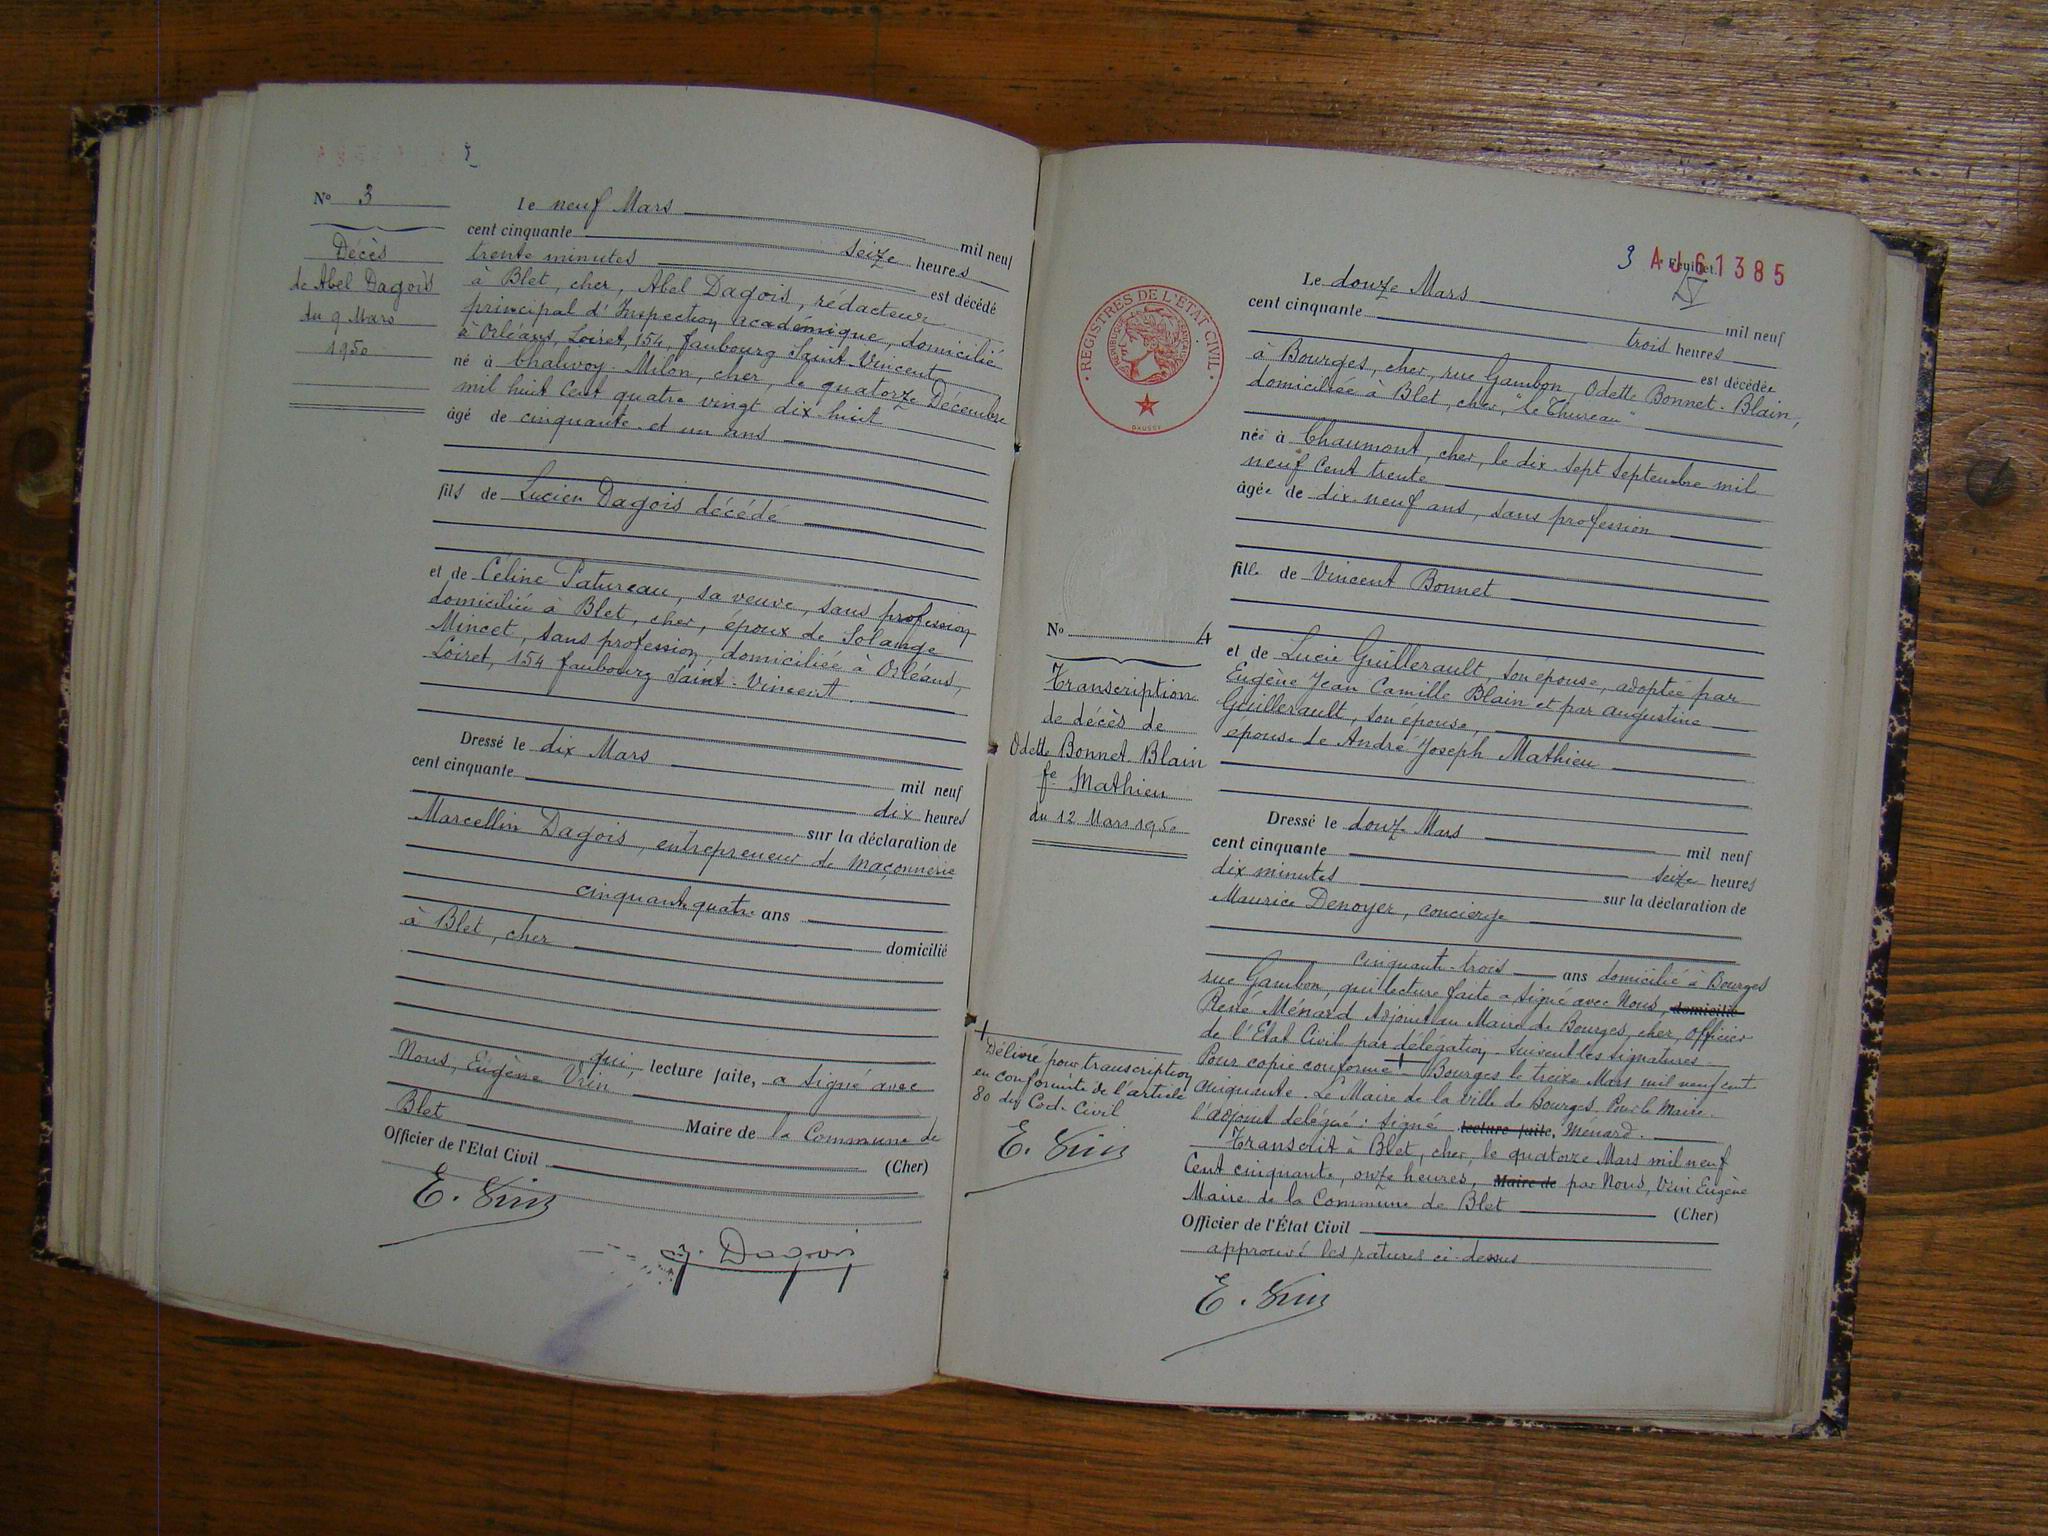 2
N° 3
Décès
de Abel Dagois
du 9 Mars
1950
Le neuf Mars mil neuf
cent cinquante seize heures
trente minutes est décédé
à Blet, cher, Abel Dagois, rédacteur
principal d'Inspection académique, domicilié
à Orléans, Loiret, 154, faubourg Saint Vincent
né à Chalivoy-Milon, cher, le quatorze Décembre
mil huit cent quatre vingt dix-huit
âgé de cinquante et un ans
fils de Lucien Dagois décédé
et de Céline Patureau, sa veuve, sans profession
domiciliée à Blet, cher, époux de Solange
Mincet, sans profession, domiciliée à Orléans,
Loiret, 154 faubourg Saint-Vincent.
Dressé le dix Mars mil neuf
cent cinquante dix heures
sur la déclaration de
Marcellin Dagois, entrepreneur de maçonnerie
cinquante quatre ans
domicilié
à Blet, cher
qui, lecture faite, a signé avec
Nous, Eugène Vrin
Maire de la Commune de
Blet (Cher)
Officier de l'Etat Civil
E. Vrin
Dagois
3 Feuillet.
AJ61385
REGISTRES DE L'ETAT CIVIL
REPUBLIQUE FRANÇAISE
DAUSSY
N° 4
Transcription
de décès de
Odette Bonnet-Blain
fe Mathieu
du 12 Mars 1950
Le douze Mars mil neuf
cent cinquante trois heures
est décédée
à Bourges, cher, rue Gambon, Odette Bonnet-Blain,
domiciliée à Blet, cher, "Le Thureau"
née à Chaumont, cher, le dix-sept Septembre mil
neuf cent trente
âgée de dix-neuf ans, sans profession
fille de Vincent Bonnet
et de Lucie Guillerault, son épouse, adoptée par
Eugène Jean Camille Blain et par augustine
Guillerault, son épouse,
épouse de André Joseph Mathieu
Dressé le douze Mars mil neuf
cent cinquante seize heures
dix minutes sur la déclaration de
Maurice Denoyer, concierge
cinquante-trois ans domicilié à Bourges
rue Gambon, qui lecture faite a signé avec Nous, domicilié
René Ménard Adjoint au Maire de Bourges, cher, Officier
de l'Etat Civil par délégation. Suivent les signatures.
Pour copie conforme + Bourges le treize Mars mil neuf cent
cinquante. Le Maire de la ville de Bourges, Pour le Maire.
l'adjoint délégué : signé lecture faite, Ménard.
Transcrit à Blet, cher, le quatorze Mars mil neuf
Cent cinquante, onze heures, Maire de par Nous, Vrin Eugène
Maire de la Commune de Blet (Cher)
Officier de l'État Civil
approuvé les ratures ci-dessus
E. Vrin
+
Délivré pour transcription
en conformité de l'article
80 du Code Civil
E. Vrin